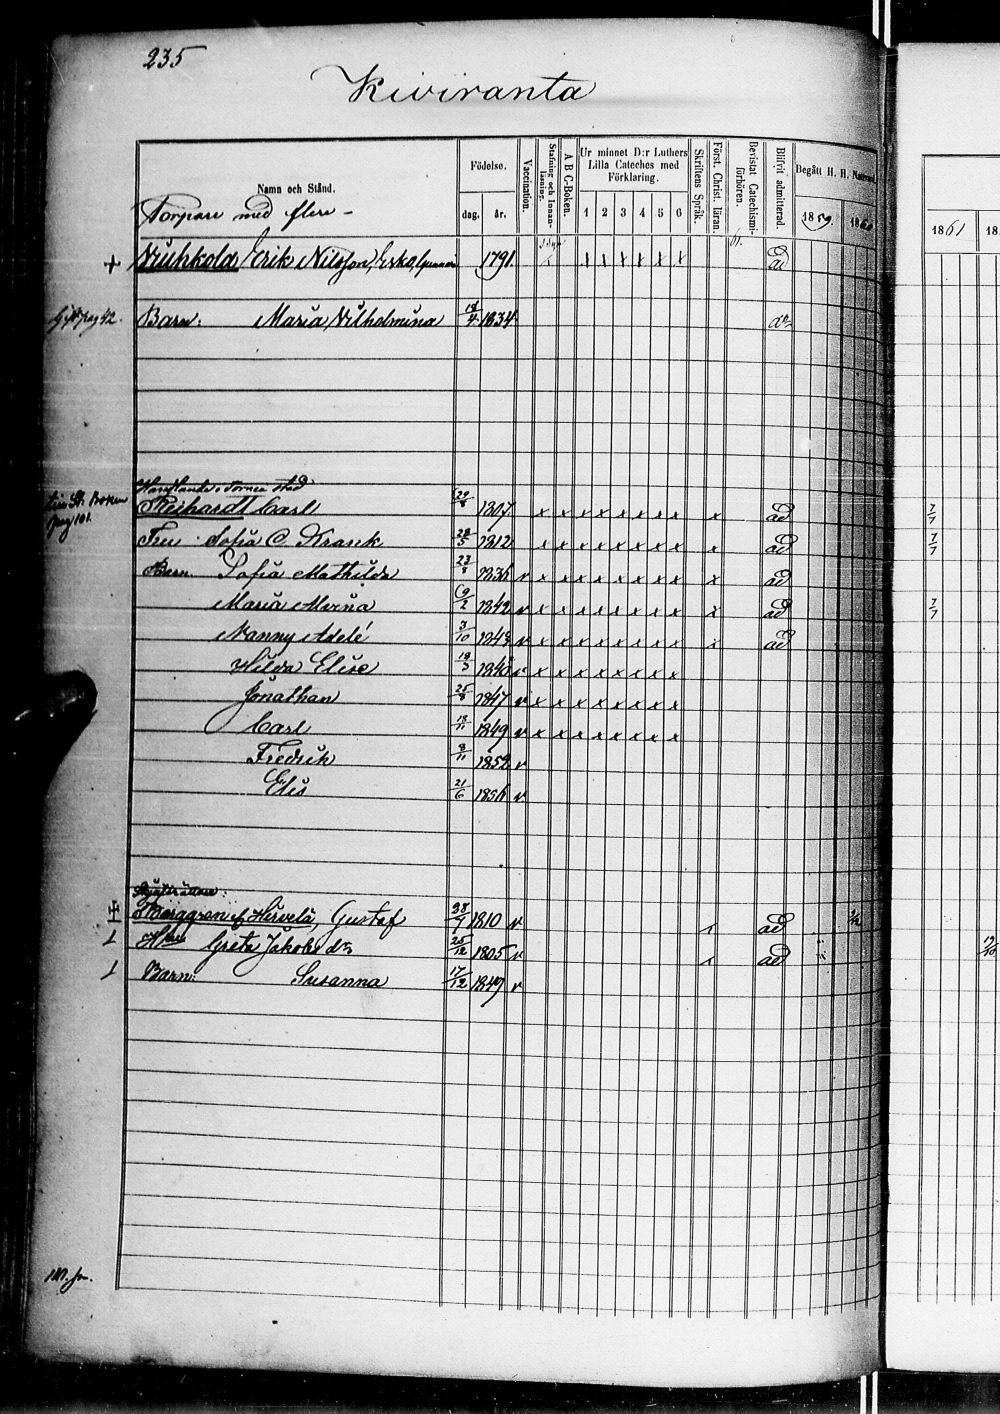 235
Kiviranta
Namn och Stånd.
Födelse.
dag. år.
Vaccination.
Stafning och Innanläsning.
A B C-Boken.
Ur minnet D:r Luthers Lilla Cateches med Förklaring.
1 2 3 4 5 6
Skriftens Språk.
Först. Christ. läran.
Bevistat Catechismiförhören.
Blifvit admitterad.
Begått H. H. Nattvard
1859. 1860
1861 18
Torpare med flere -
+ Erik Nilsson, 1791. x x x x x x ad
pag 42. Barn: Maria Vilhelmina 18/4 1834
pag 101. Reihardt Carl 29/8 1807 x x x x x x x x x ad 7/7
Fru Sofia C. Krank 28/5 1812 x x x x x x x x x ad 7/7
Barn Sofia Mathilda 23/8 1836 v x x x x x x x x x ad
Maria Alvina 19/2 1842 v x x x x x x x x x ad 7/7
Nanny Adelé 3/10 1843 v x x x x x x x x x ad
Hilda Elise 18/3 1845 v x x x x x x x x
Jonathan 25/8 1847 v x x x x x x x x
Carl 18/11 1849 v x x x x x x x x
Fredrik 8/11 1852 v
Elis 21/6 1856 v
Berggren el. Hirvelä, Gustaf 1810 v ad
Greta Jakobs dr 25/12 1805 v ad
Barn: Susanna 17/12 1849 v